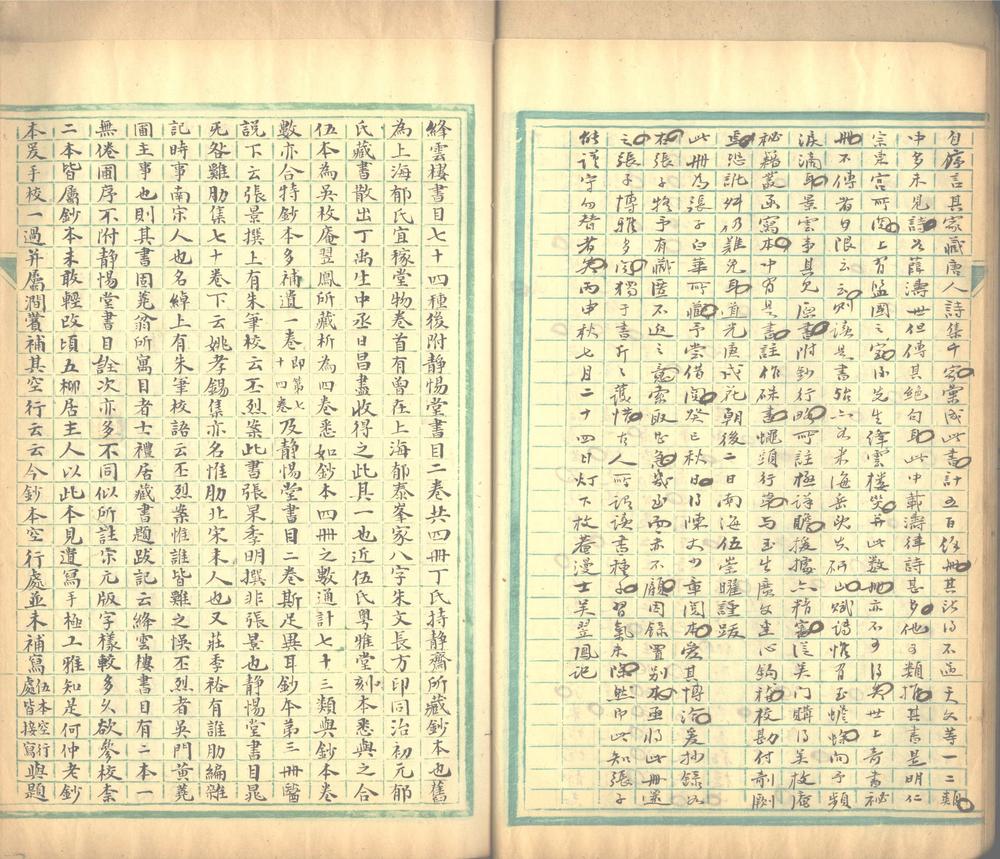 自序言其家藏唐人詩集千家彙成此書計五百餘冊其詩得不過天文等一二類
中多未見詩如薛濤世但傳其絕句耳此中載濤律詩甚多他可類推其書是明仁
宗東宮所閱上有監國之寶小先生絳雲樓災并此數冊亦不可得矣世上奇書祕
冊不傳者曷限云云則語是書米海岳研山賦詩惟有玉蟾蜍向予頻
淚滴耳景雲事具見原書附刻行略所註極詳贍援據亦精審從吴门購得吴枚庵
秘籍叢函寫本中有是書註作硃書蠅頭行第与玉生廣文悉心鈎稽校勘付剞劂
焉恐訛舛仍難免耳道光庚戌花朝後二日南海伍崇曜謹跋
此冊為張子白華所藏予嘗借閱癸巳秋日得陳丈少章閱本愛其博洽爰抄錄如
右張子將予有藏匿不返之意索取甚急不顧因錄置別本亟將此冊還
之張子博雅多聞獨于書斤斤護惜古人所謂讀書種子習氣未除然即此知張子
能謹守勿替者矣丙申秋七月二十四日灯下枚菴漫士吴翌鳳記
絳雲樓書目七十四種後附靜惕堂書目二卷共四冊丁氏持靜齋所藏鈔本也舊
為上海郁氏宜稼堂物卷首有曾在上海郁泰峯家八字朱文長方印同治初元郁
氏藏書散出丁禹生中丞日昌盡收得之此其一也近伍氏粵雅堂刻本悉與之合
伍本為吳枚庵翌鳳所藏析為四卷悉如鈔本四冊之數通計七十三類與鈔本卷
數亦合特鈔本多補遺一卷即第七十四卷及靜惕堂書目二卷斯足異耳鈔本第三冊醫
說下云張景撰上有朱筆校云丕烈案此書張杲季明撰非張景也靜惕堂書目晁
死咎雞肋集七十卷下云姚孝錫集亦名惟肋北宋末人也又莊季裕有誰肋編雜
記時事南宋人也名綽上有朱筆校語云丕烈案惟誰皆雞之悞丕烈者吳門黃蕘
圃主事也則其書固蕘翁所寓目者士禮居藏書題跋記云絳雲樓書目有二本一
無倦圃序不附靜惕堂書目詮次亦多不同似所註宗元版字樣較多久欲參校柰
二本皆屬鈔本未敢輕改頃五柳居主人以此本見遺寫手極工雅知是何仲老鈔
本爰手校一過并屬澗薲補其空行云云今鈔本空行處並未補寫伍本空行處皆接寫與題